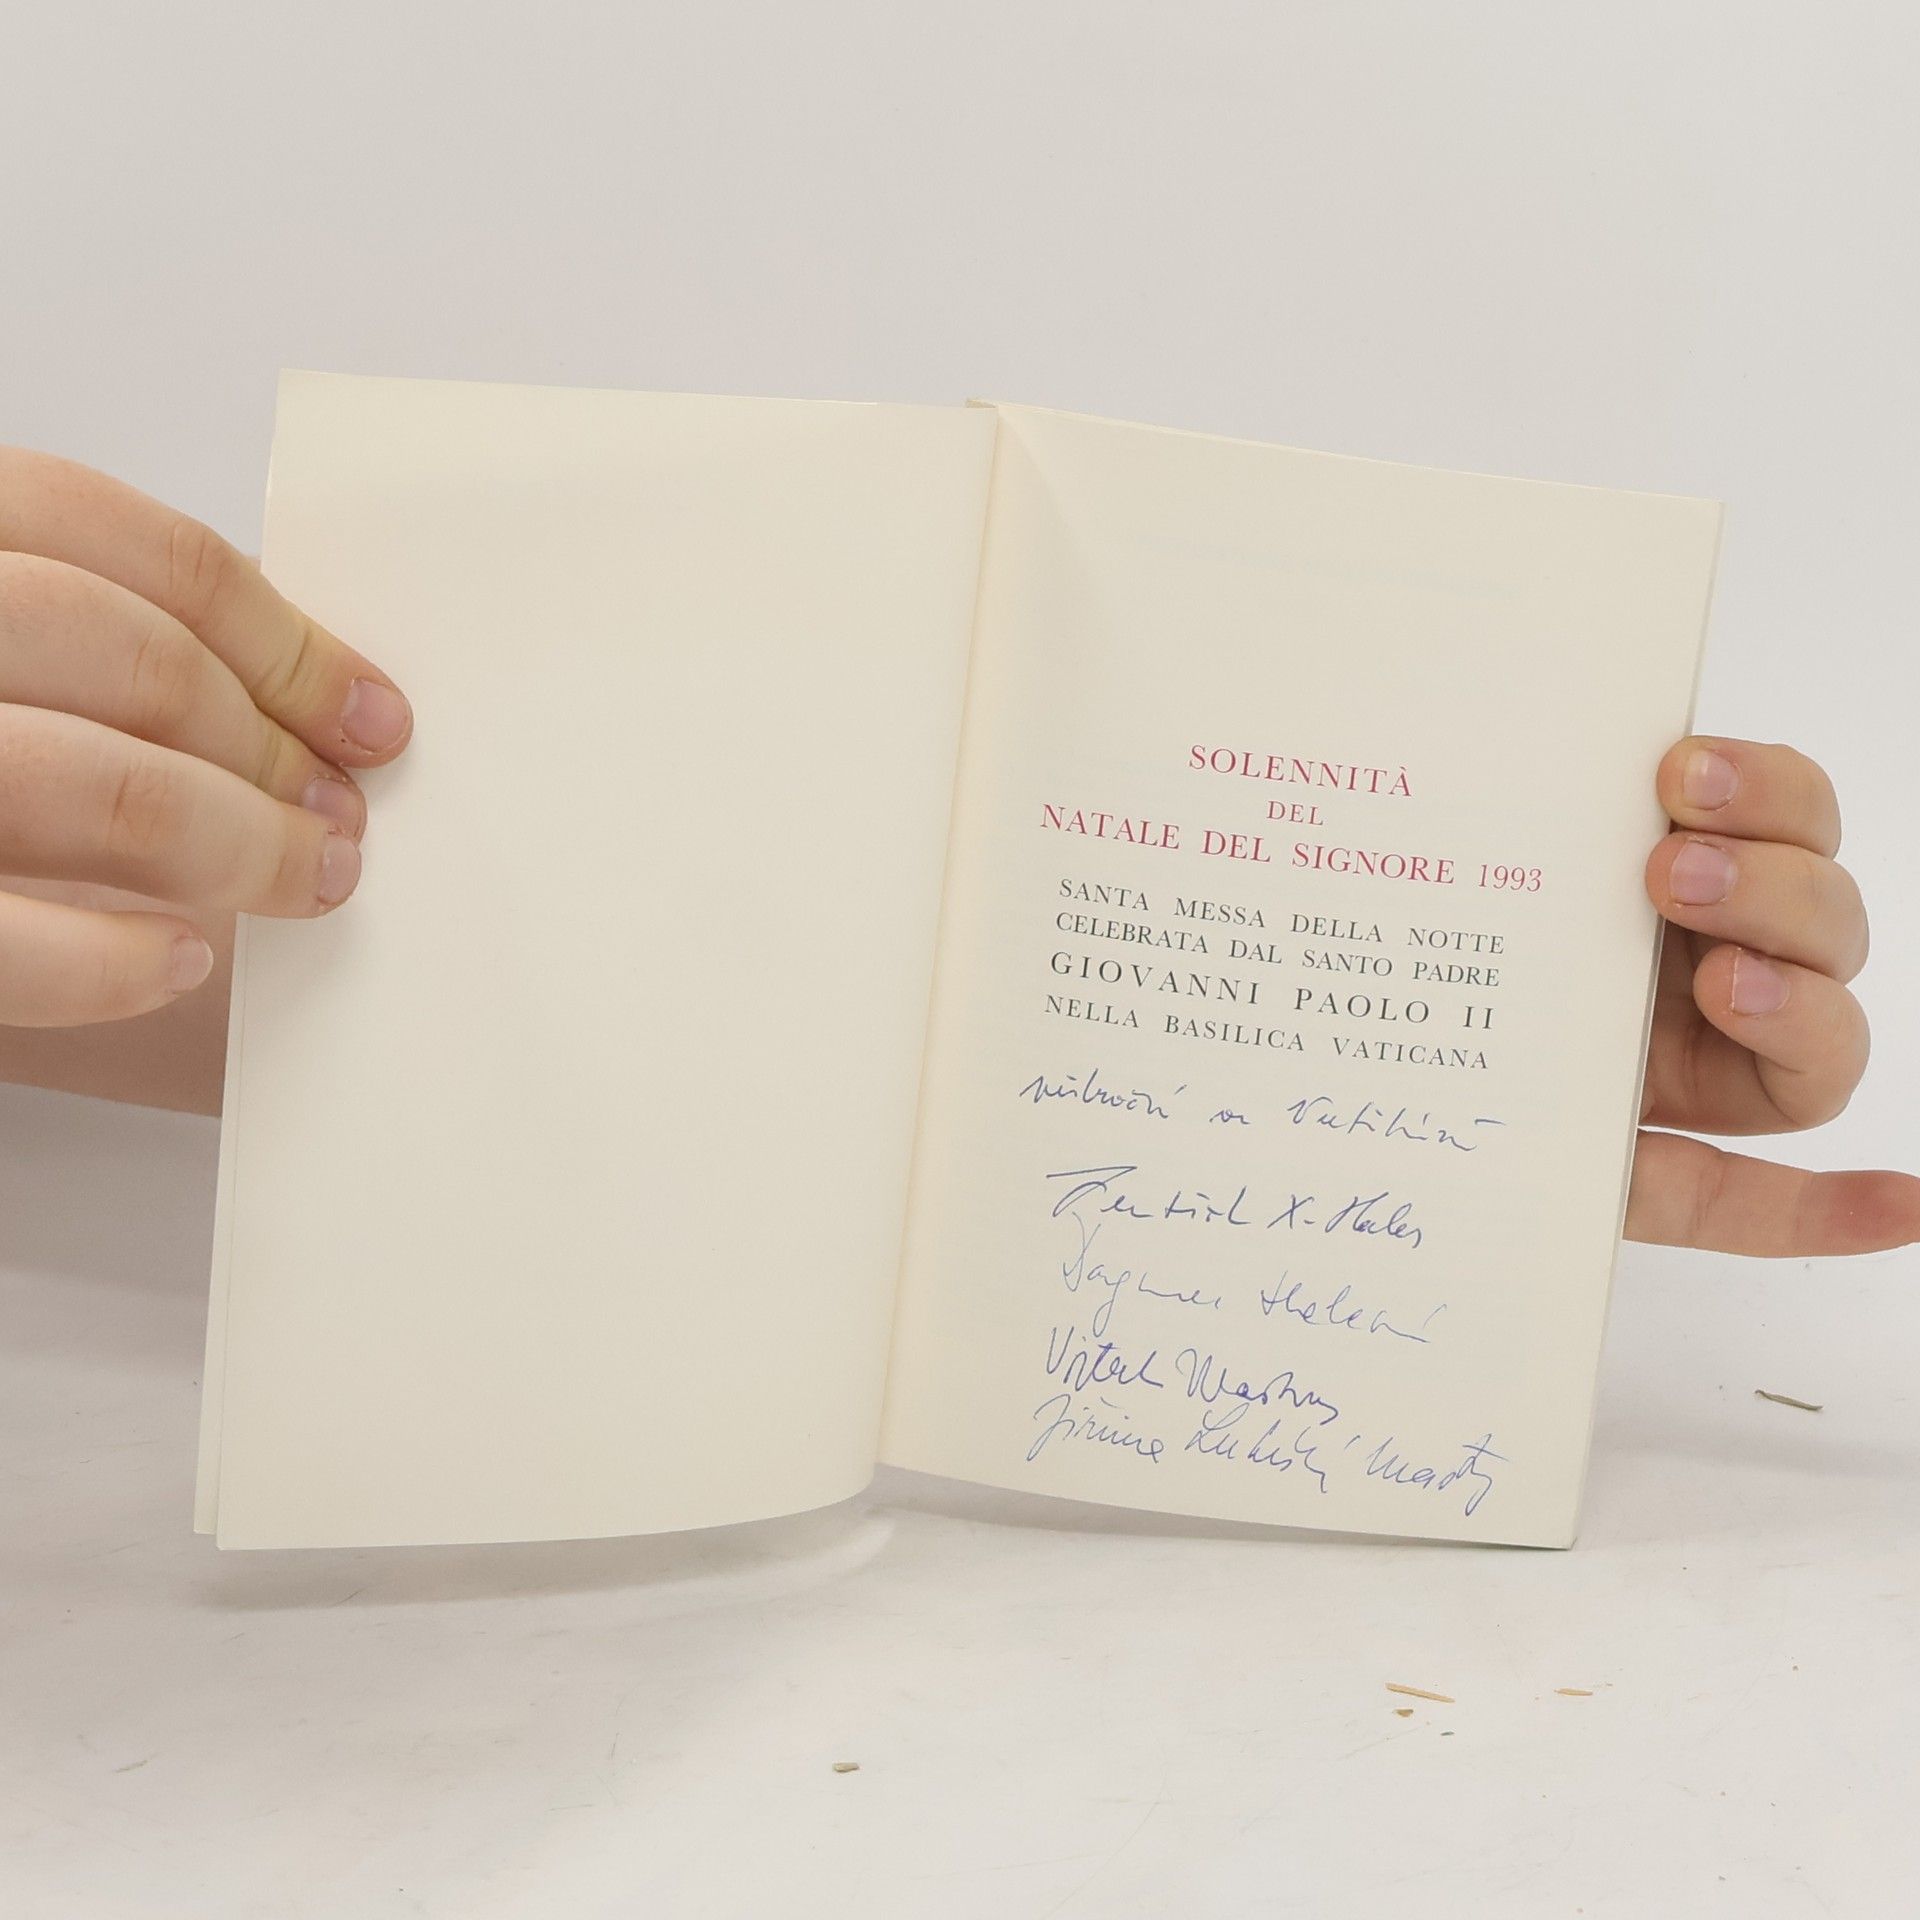 SOLENNITÀ
DEL
NATALE DEL SIGNORE 1993
SANTA MESSA DELLA NOTTE
CELEBRATA DAL SANTO PADRE
GIOVANNI PAOLO II
NELLA BASILICA VATICANA
půlnoční ve Vatikáně
František X. Halas
Dagmar Halasová
Vojtěch Mastny
Jiřina Lukešká Mastny